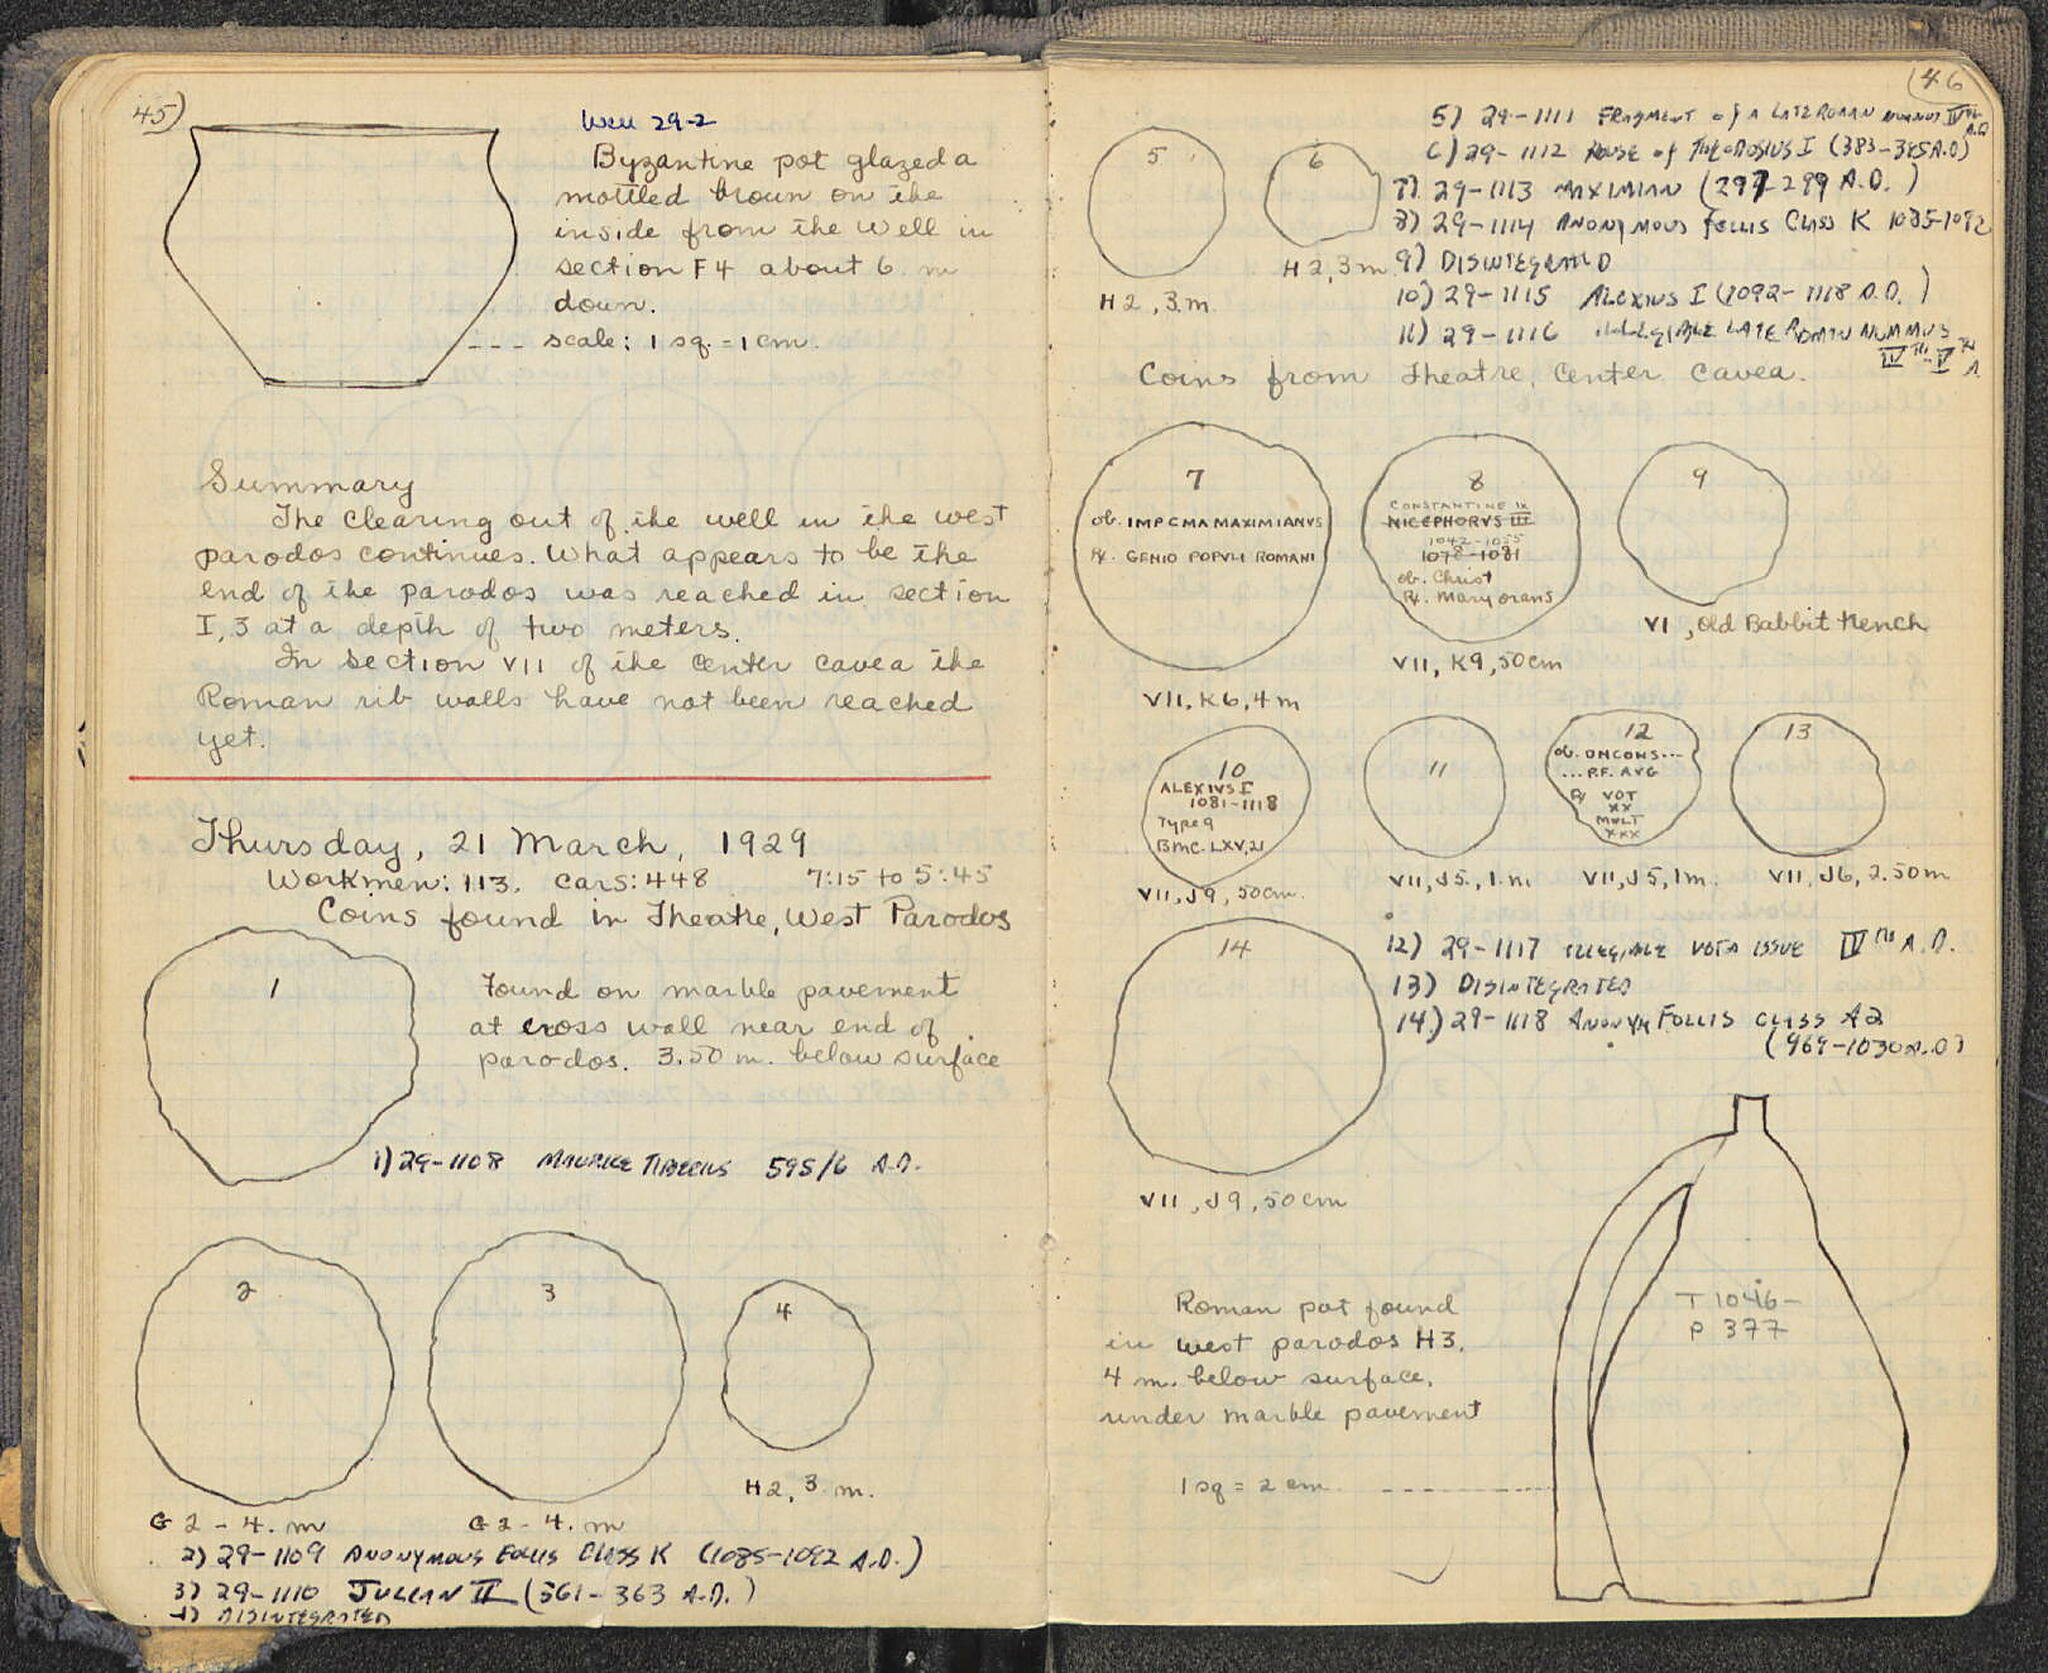 45)
Well 29-2
Byzantine pot glazed a
mottled brown on the
inside from the well in
section F4 about 6 m
down.
--- scale: 1 sq. = 1 cm.
Summary
The clearing out of the well in the west
parodos continues. What appears to be the
end of the parodos was reached in section
I, 3 at a depth of two meters.
In section VII of the center cavea the
Roman rib walls have not been reached
yet.
Thursday, 21 March, 1929
Workmen: 113. Cars: 448 7:15 to 5:45
Coins found in Theatre, West Parodos
1
Found on marble pavement
at cross wall near end of
parodos. 3.50 m. below surface
1) 29-1108 MAURICE TIBERIUS 595/6 A.D.
2
3
4
H2, 3 m.
G 2 - 4. m
G 2 - 4. m
2) 29-1109 ANONYMOUS FOLLIS CLASS K (1085-1092 A.D.)
3) 29-1110 JULIAN II (361-363 A.D.)
4) DISINTEGRATED
46
5
6
H 2, 3. m.
H 2, 3 m.
5) 29-1111 FRAGMENT of A LATE ROMAN NUMMUS IVth A.D.
6) 29-1112 HOUSE of THEODOSIUS I (383-385 A.D)
7) 29-1113 MAXIMIAN (297-299 A.D.)
8) 29-1114 ANONYMOUS FOLLIS CLASS K 1085-1092
9) DISINTEGRATED
10) 29-1115 ALEXIUS I (1092-1118 A.D.)
11) 29-1116 ILLEGIBLE LATE ROMAN NUMMUS
IVTH-VTH A.
Coins from Theatre, Center Cavea.
7
ob. IMP C MA MAXIMIANVS
R. GENIO POPVLI ROMANI
VII, K6, 4 m
8
CONSTANTINE IX
NICEPHORVS III
1042-1055
1078-1081
ob. Christ
R. Mary orans
VII, K9, 50 cm
9
VI, Old Babbit trench
10
ALEXIVS I
1081-1118
Type 9
BMC. LXV, 21
VII, J9, 50 cm.
11
VII, J5, 1. m.
12
ob. DNCONS...
...P.F. AVG
R. VOT
XX
MVLT
XXX
VII, J5, 1 m.
13
VII, J6, 2.50 m
14
VII, J9, 50 cm
12) 29-1117 ILLEGIBLE VOTA ISSUE IVTH A.D.
13) DISINTEGRATED
14) 29-1118 ANONYM FOLLIS CLASS A2
(969-1030 A.D)
T 1046-
P 377
Roman pot found
in west parodos H3.
4 m. below surface.
under marble pavement
1 sq = 2 cm.